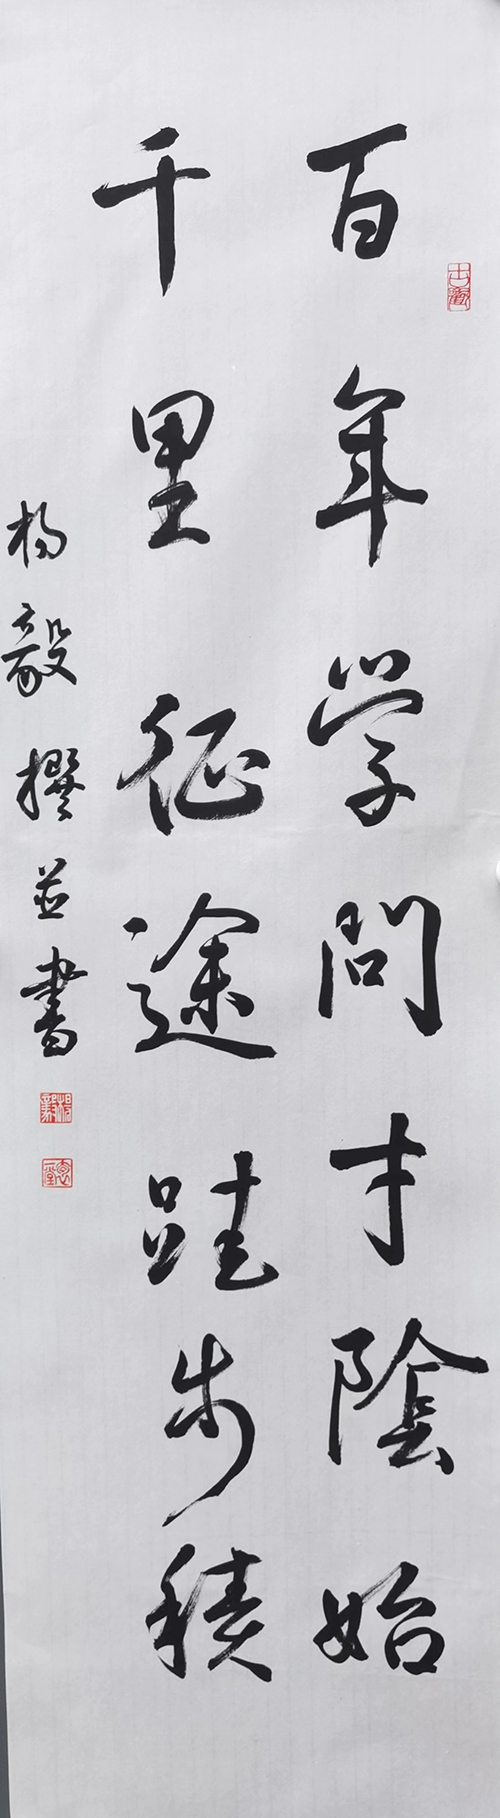 百年学問寸陰始
千里征途跬步積
杨毅撰並書
楊毅